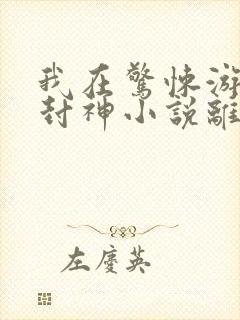 我在驚悚游
封神小說離
左慶英